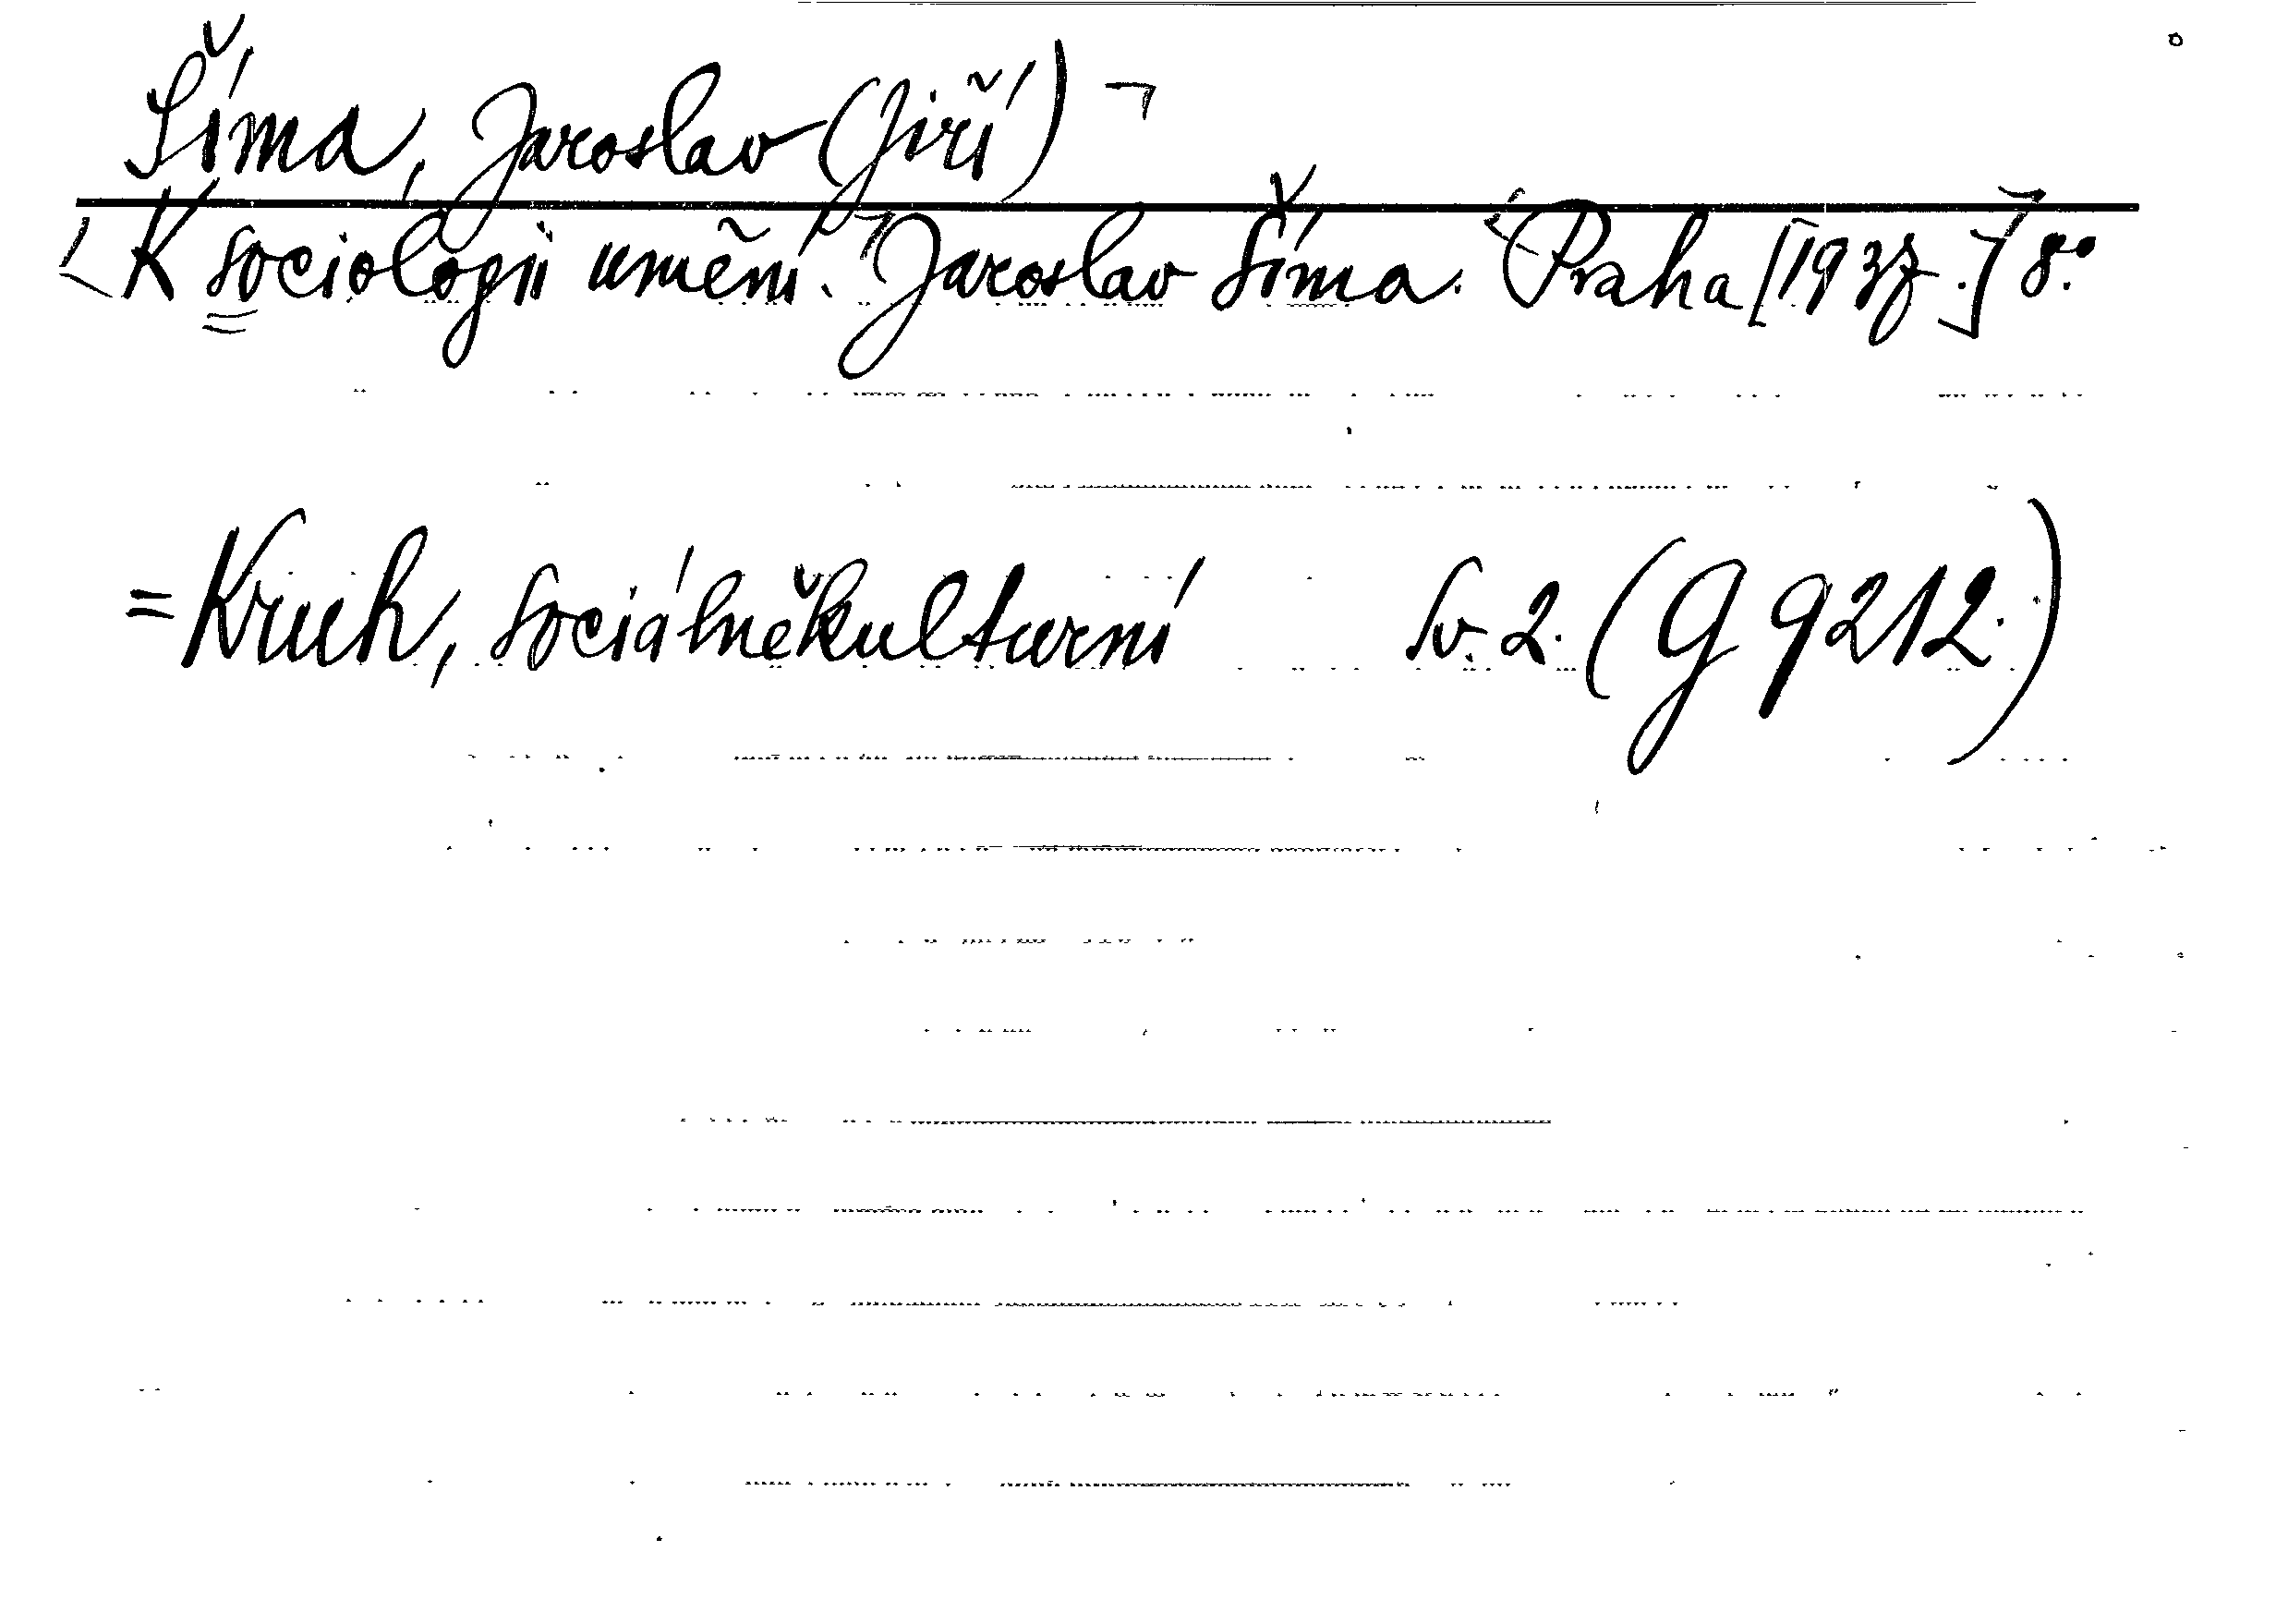 Šíma, Jaroslav (Jiří)
K sociologii umění. Jaroslav Šíma. Praha [1937.] 8º.
= Kruh, sociálněkulturní Sv. 2. (G 9212.)